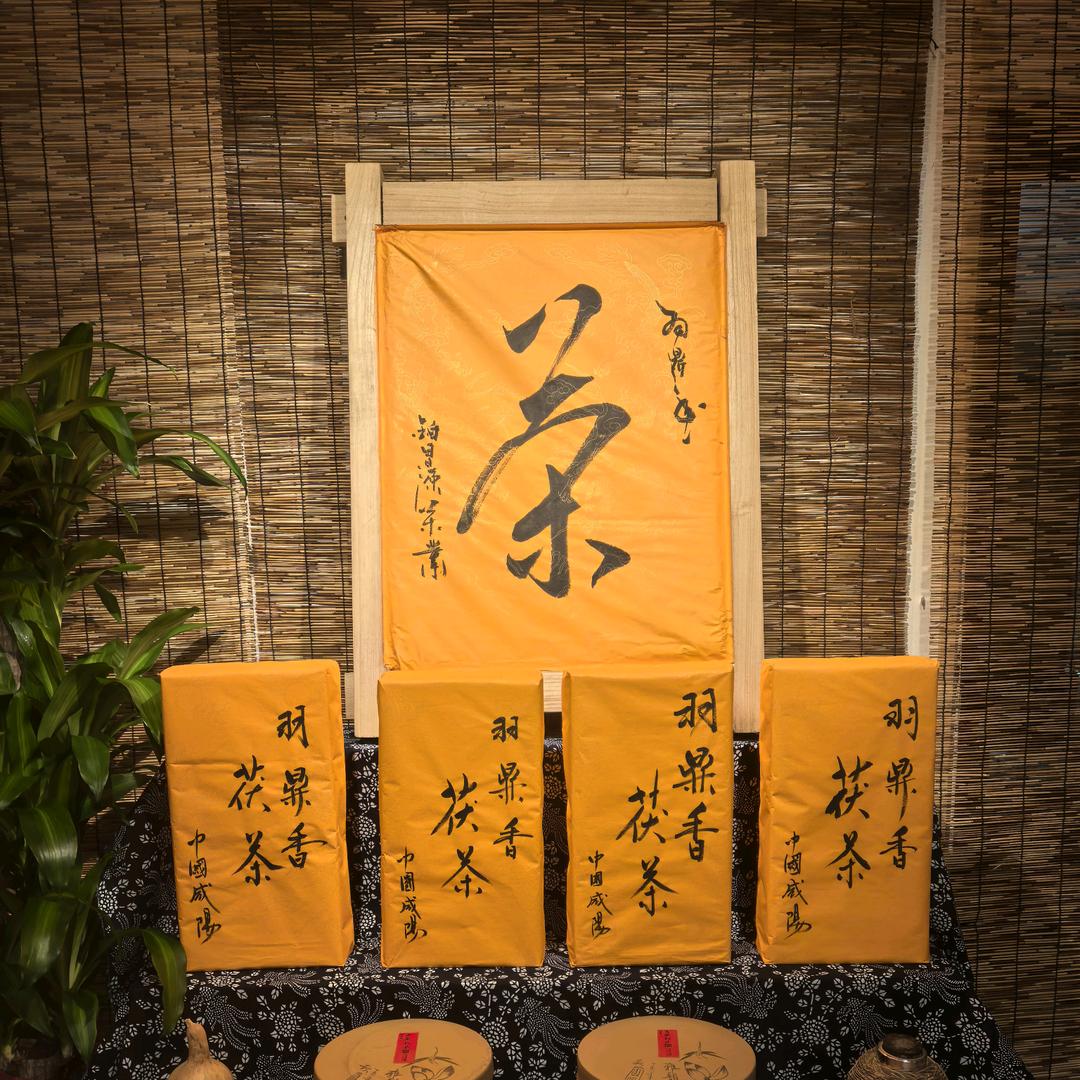 羽鼎香
茶
茶業
羽鼎香
茯茶
中國咸陽
羽鼎香
茯茶
中國咸陽
羽鼎香
茯茶
中國咸陽
羽鼎香
茯茶
中國咸陽